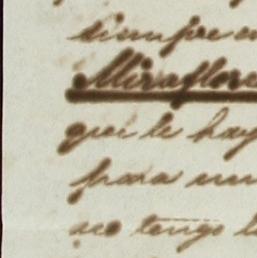 siempre en
Miraflore
que le hay
para un
no tengo l